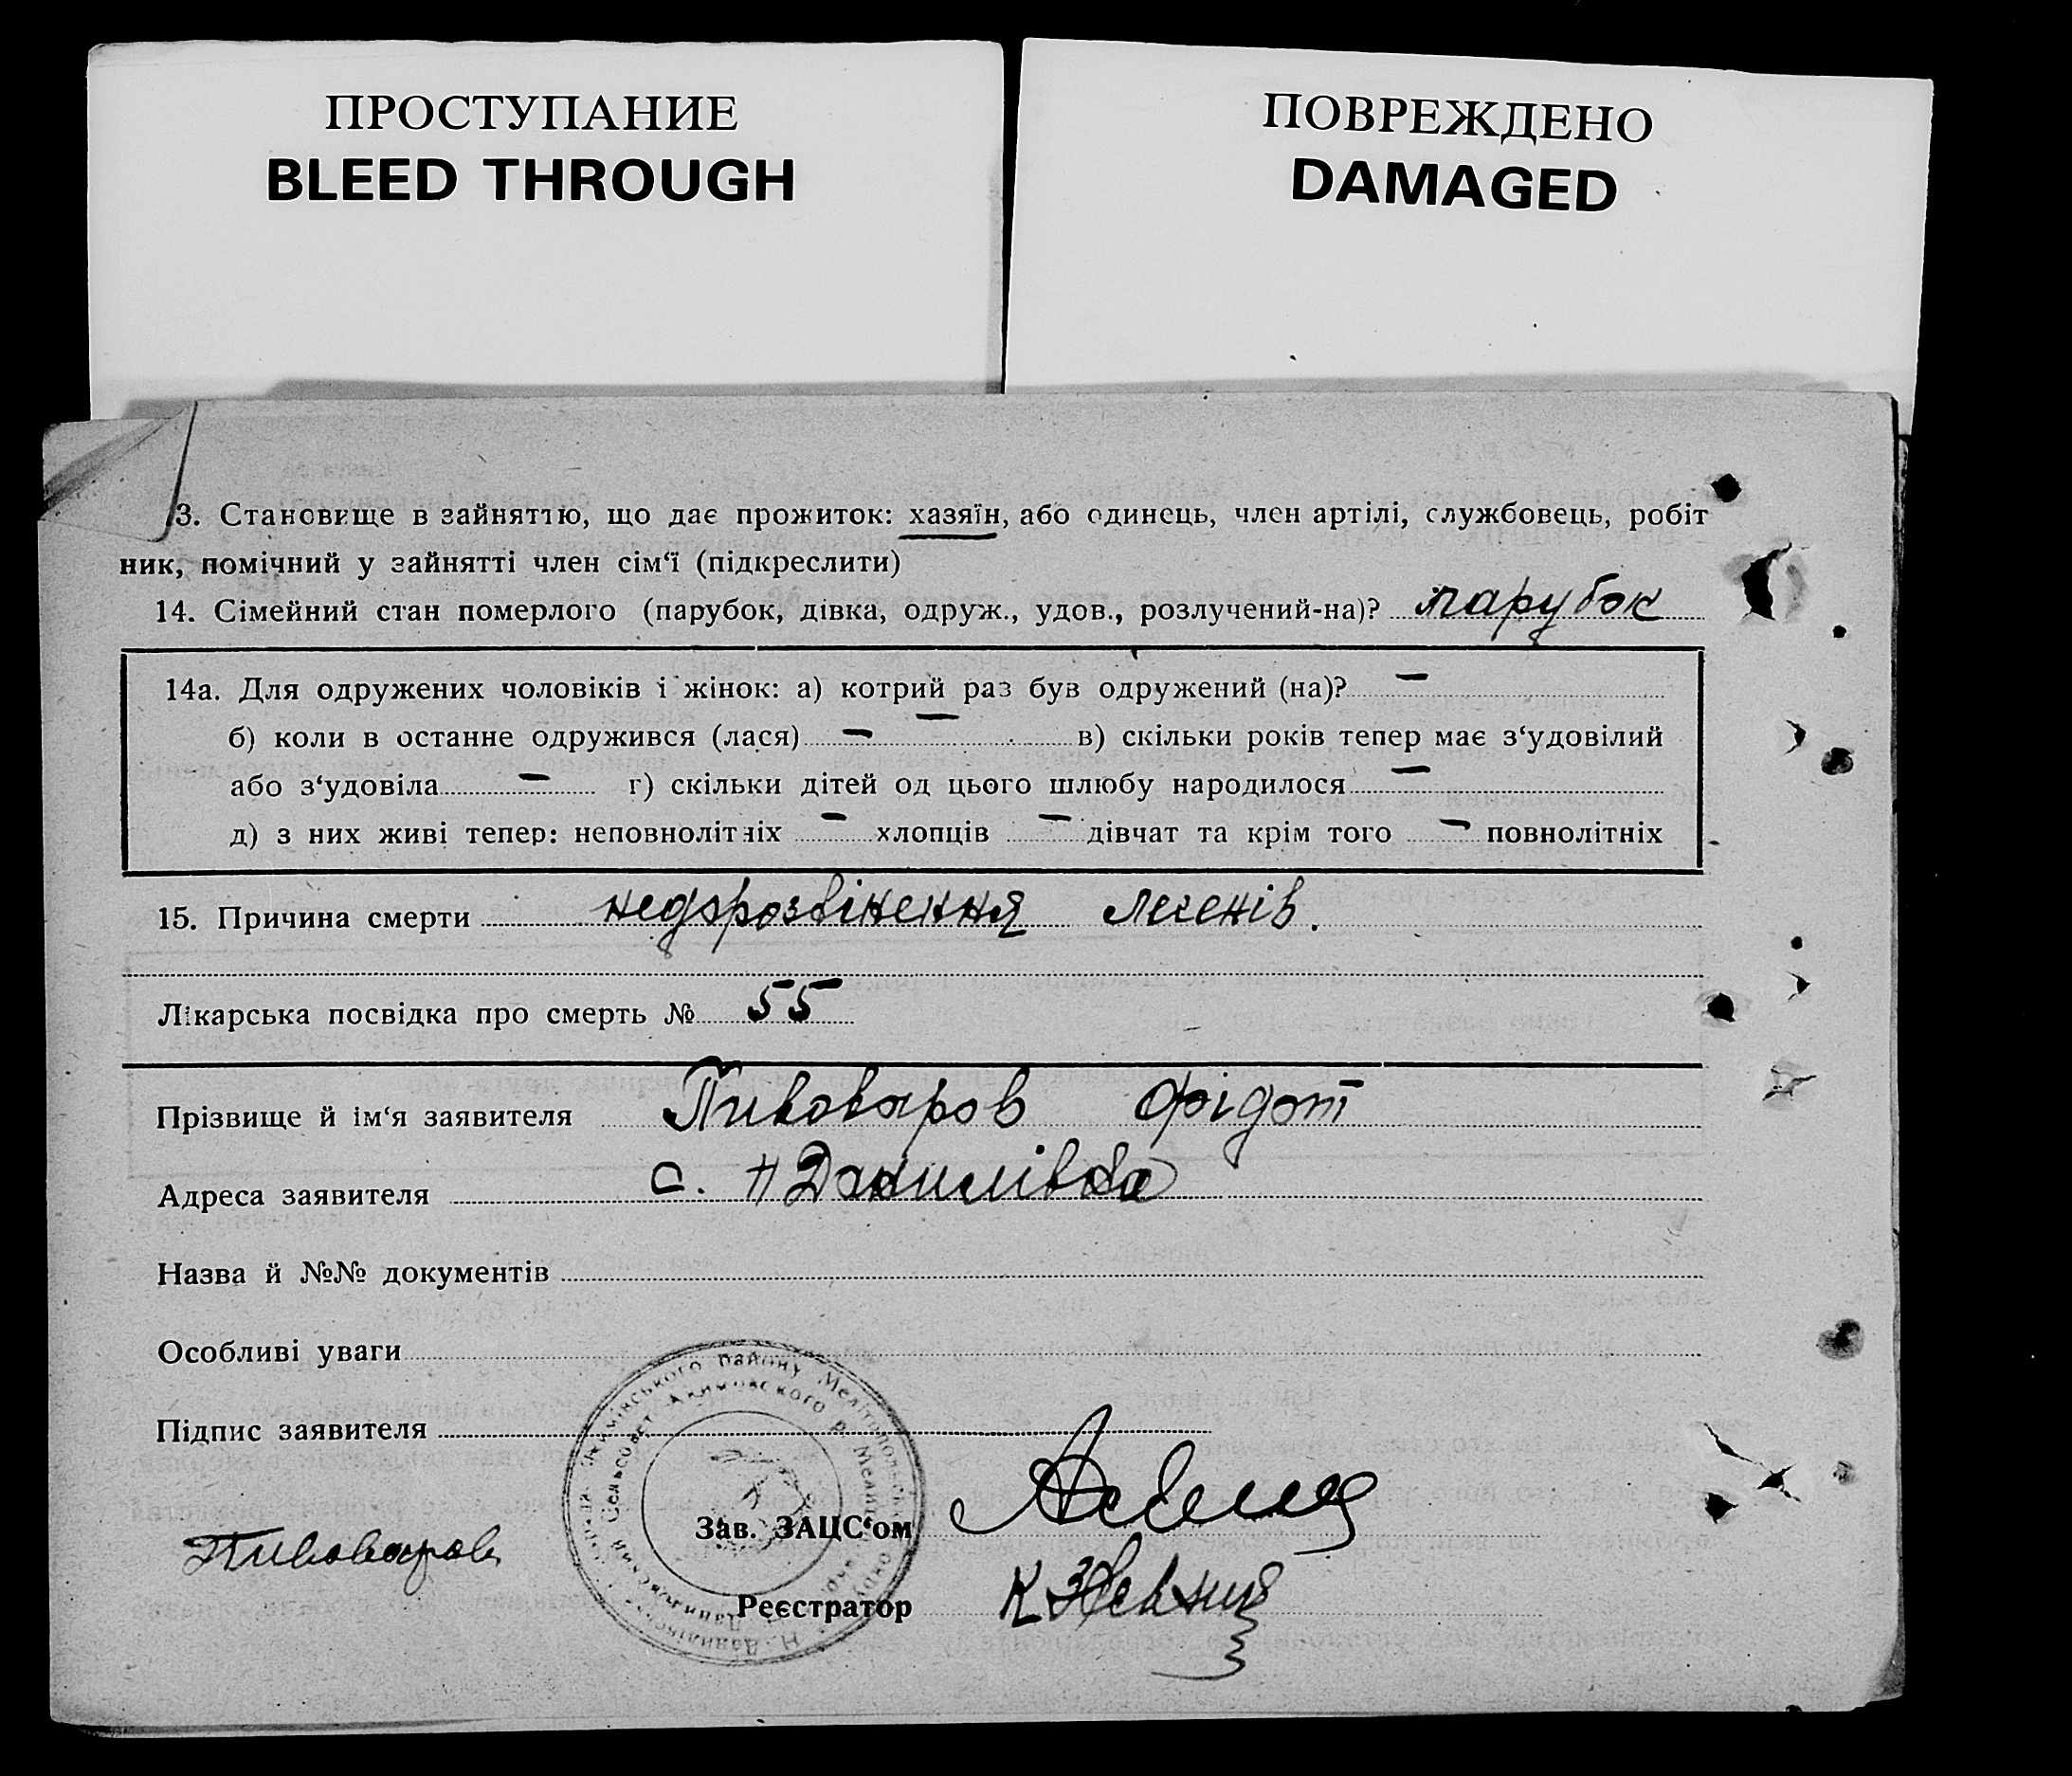 ПРОСТУПАНИЕ
BLEED THROUGH
ПОВРЕЖДЕНО
DAMAGED
3. Становище в зайняттю, що дає прожиток: хазяїн, або одинець, член артілі, службовець, робіт
ник, помічний у зайнятті член сім‘ї (підкреслити)
14. Сімейний стан померлого (парубок, дівка, одруж., удов., розлучений-на)? парубок
14а. Для одружених чоловіків і жінок: а) котрий раз був одружений (на)? —
б) коли в останне одружився (лася) — — в) скільки років тепер має з‘удовілий
або з‘удовіла — г) скільки дітей од цього шлюбу народилося —
д) з них живі тепер: неповнолітніх — хлопців — дівчат та крім того — повнолітніх
15. Причина смерти недорозвінення легенів.
Лікарська посвідка про смерть № 55
Прізвище й ім‘я заявителя Пивоваров Фідот
Адреса заявителя с. Н Данилівка
Назва й №№ документів
Особливі уваги
Підпис заявителя
Зав. ЗАЦС‘ом
Пивоваров
Реєстратор
Якимівського району Мелітопольської округи
Сельсовет Акимовского р. Мелит
Н. Данилівс